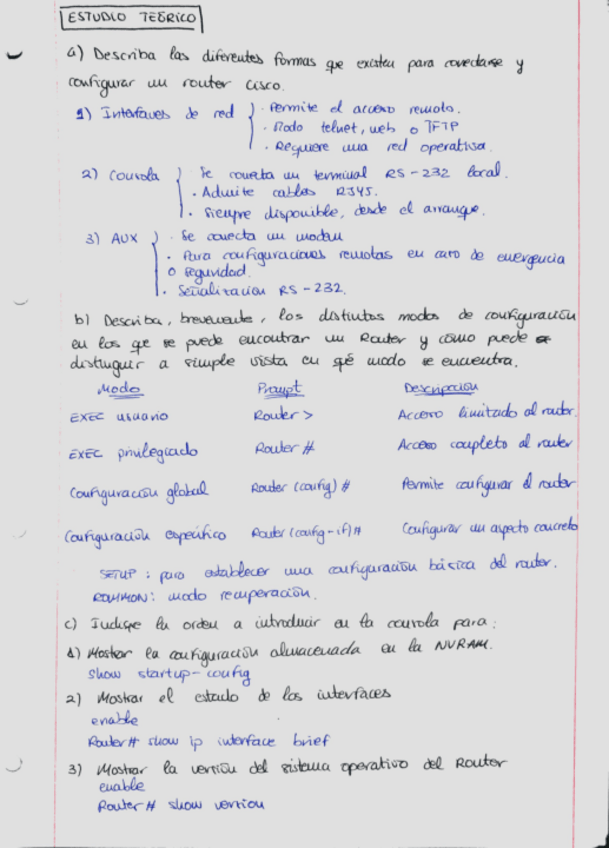 ESTUDIO TEÓRICO
a) Describa las diferentes formas que existen para conectarse y
configurar un router cisco.
1) Interfaces de red } · Permite el acceso remoto.
· Modo telnet, web o TFTP
· Requiere una red operativa.
2) Consola } · Se conecta un terminal RS-232 local.
· Admite cables RJ45.
· Siempre disponible, desde el arranque.
3) AUX } · Se conecta un modem
· Para configuraciones remotas en caso de emergencia
o seguridad.
· Señalización RS-232.
b) Describa, brevemente, los distintos modos de configuración
en los que se puede encontrar un Router y cómo puede
distinguir a simple vista en qué modo se encuentra.
Modo Prompt Descripción
EXEC usuario Router > Acceso limitado al router.
EXEC privilegiado Router # Acceso completo al router
Configuración global Router (config) # Permite configurar el router
Configuración específico Router (config-if) # Configurar un aspecto concreto
SETUP : para establecer una configuración básica del router.
ROMMON : modo recuperación.
c) Indique la orden a introducir en la consola para :
1) Mostrar la configuración almacenada en la NVRAM.
show startup-config
2) Mostrar el estado de los interfaces
enable
Router # show ip interface brief
3) Mostrar la versión del sistema operativo del Router
enable
Router # show version